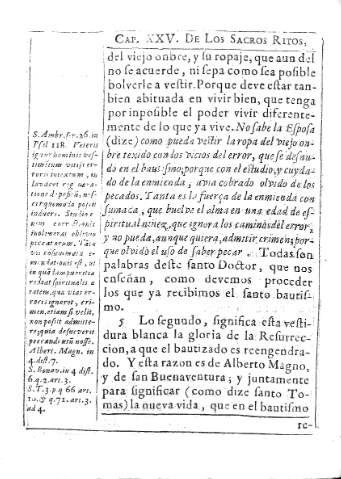 CAP. XXV. DE LOS SACROS RITOS,
del viejo onbre, y su ropaje, que aun del
no se acuerde, ni sepa como sea posible
bolverle a vestir. Porque deve estar tan-
bien abituada en vivir bien, que tenga
por inposible el poder vivir diferente-
mente de lo que ya vive. No sabe la Esposa
(dize) como pueda vestir la ropa del viejo on-
bre texido con los vicios del error, que se desnu-
dò en el bautismo, porque con el estudio, y cuyda-
do de la enmienda, avia cobrado olvido de los
pecados. Tanta es la fuerça de la enmienda con
sumada, que buelve el alma en una edad de es-
piritual niñez, que ignora los caminos del error,
y no pueda, aunque quiera, admitir crimen; por-
que olvidò el uso de saber pecar. Todas son
palabras deste santo Doctor, que nos
enseñan, como devemos proceder
los que ya recibimos el santo bautis-
mo.
5 Lo segundo, significa esta vesti-
dura blanca la gloria de la Resurrec-
cion, a que el bautizado es reengendra-
do. Y esta razon es de Alberto Magno,
y de san Buenaventura; y juntamente
para significar (como dize santo To-
mas) la nueva vida, que en el bautismo
re-
S. Ambr. ser. 26. in
Psal 118. Veteris
igitur hominis ves-
timentum
peccatorum.
ratem, que vias er-
roris ignoret, cri-
men, etiam si velit,
non possit admitte-
re, quia
peccandi
Albert. Magn. in
4. dist. 7.
S. Bonav. in 4 dist.
6. q. 2. art. 3.
S. T. 3. p. q 66 art.
10. & q. 71. art. 3.
ad 4.